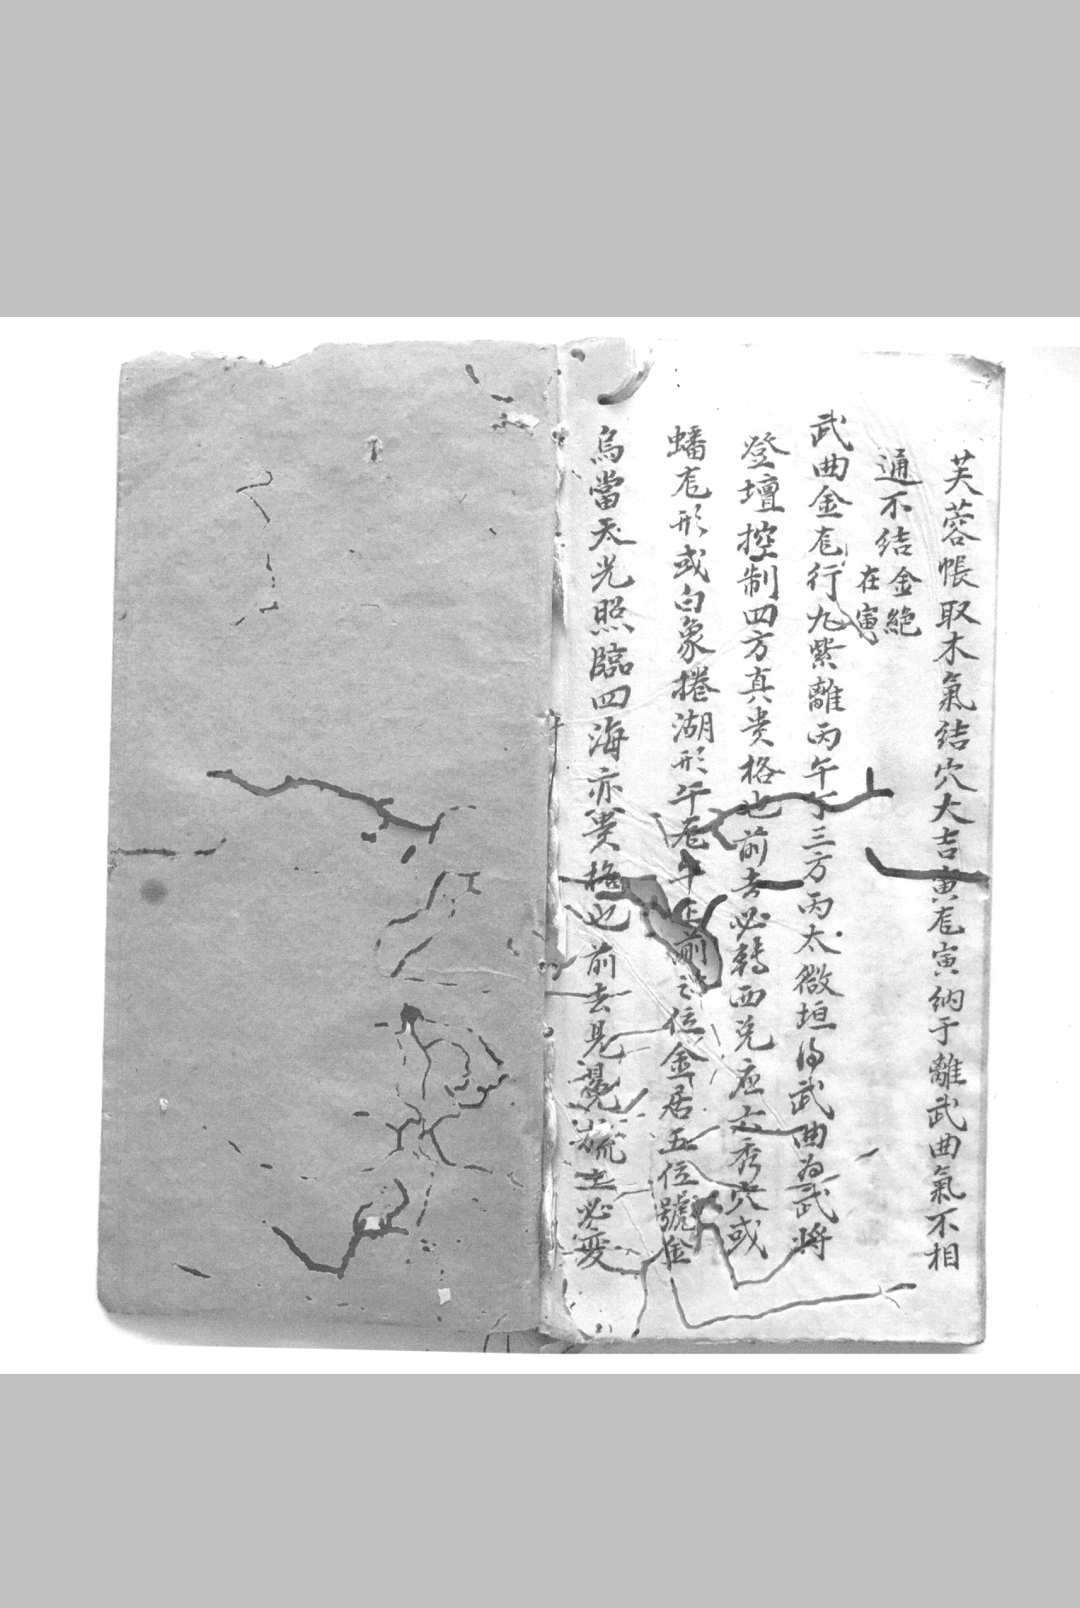 芙蓉帳取木氣结穴大吉寅尨寅納于離武曲氣不相
通不结金絶在寅
武曲金尨行九紫離丙午丁三方丙太微垣得武曲為武将
登壇控制四方真贵格也前去必轉西兑庭六秀穴或
蟠尨形或白象捲湖形午尨午正前之位金居五位號金
烏當天光照臨四海亦贵格也前去見土必変